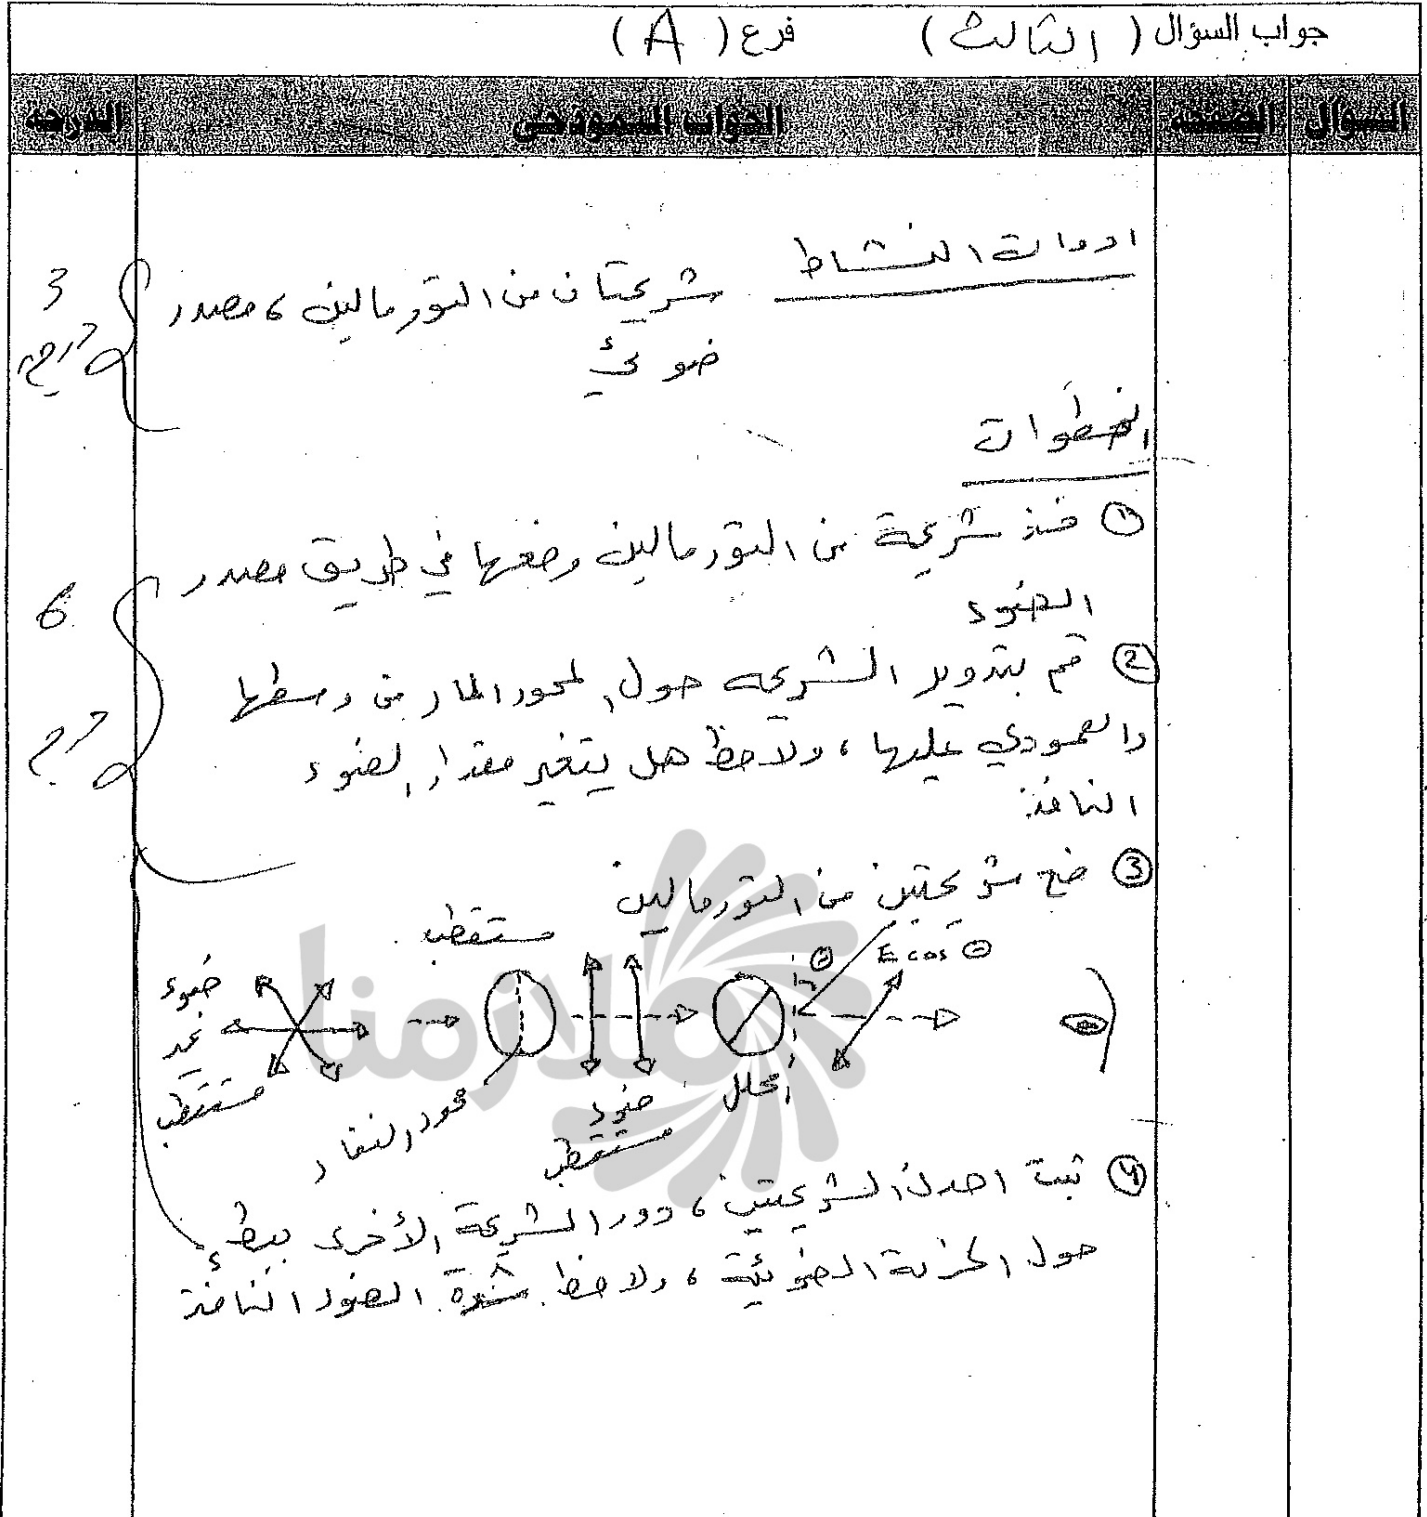 جواب السؤال ( الثالث ) فرع ( A )
السؤال الصفحة الجواب النموذجي الدرجة
ادوات النشاط شريحتان من التورمالين ، مصدر
3 درجة
ضوئي
الخطوات
① خذ شريحة من التورمالين وضعها في طريق مصدر
الضوء
6 درجة
② قم بتدوير الشريحه حول المحور المار من وسطها
والعمودي عليها ، ولاحظ هل يتغير مقدار الضوء
النافذ.
③ ضع شريحتين من التورمالين
مستقطب
θ E cos θ
ضوء
غير
مستقطب
محور النفاذ
ضوء
مستقطب
المحلل
ملازمنا
④ ثبت احدى الشريحتين ، دور الشريحة الأخرى ببطء
حول الحزمة الضوئية ، ولاحظ شدة الضوء النافذ